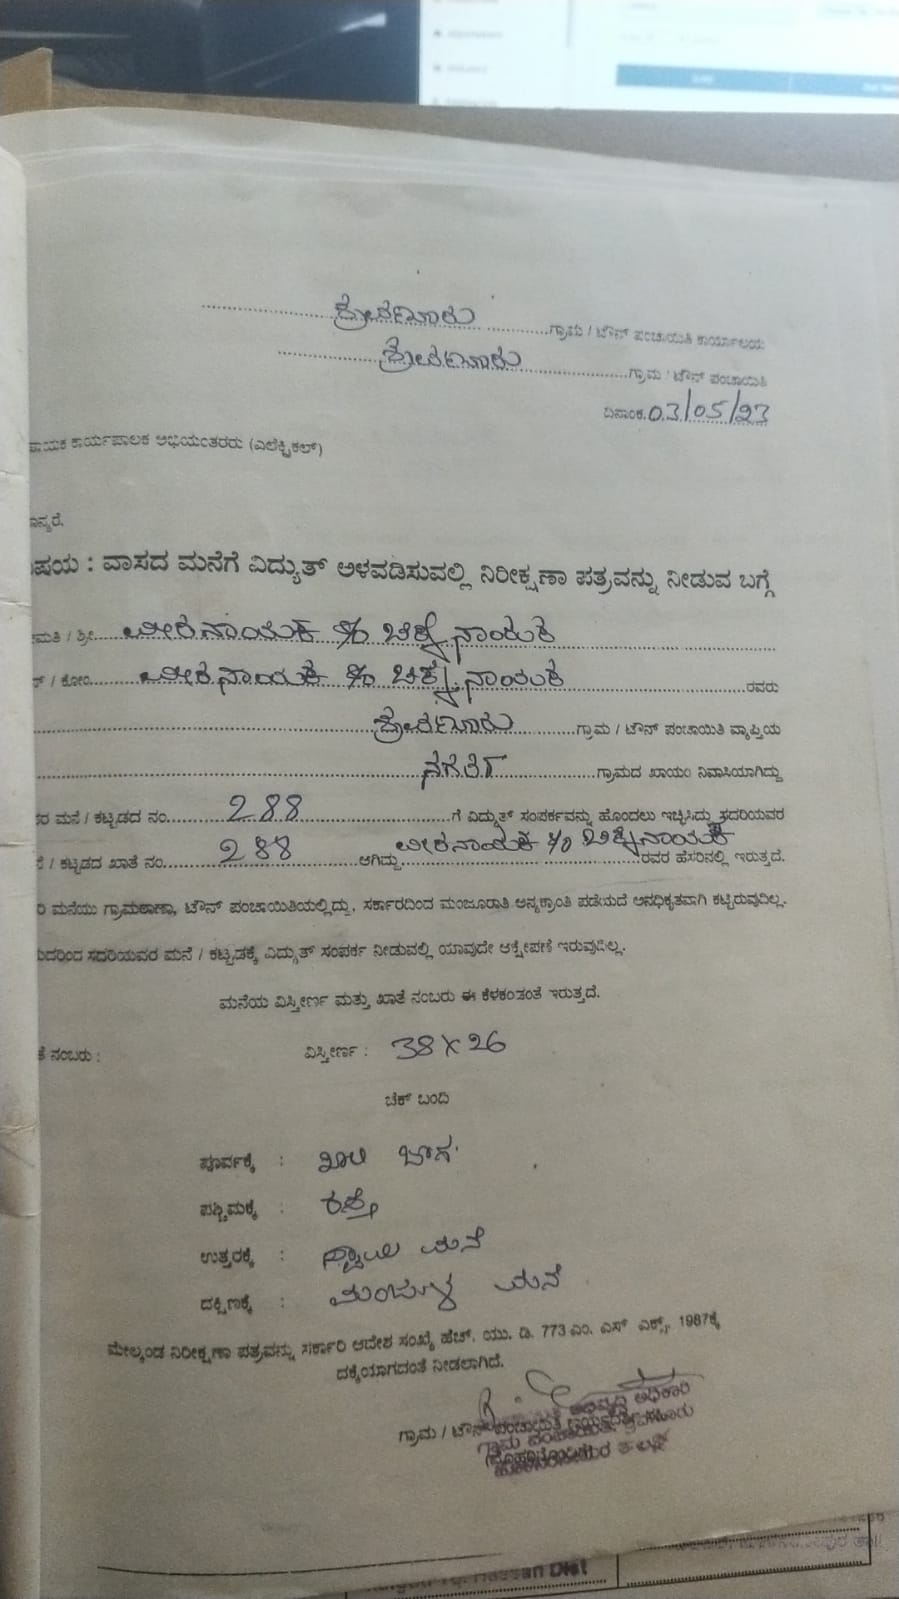 ಶ್ರೀರವೂರು ಗ್ರಾಮ / ಟೌನ್ ಪಂಚಾಯಿತಿ ಕಾರ್ಯಾಲಯ
ಗ್ರಾಮ / ಟೌನ್ ಪಂಚಾಯಿತಿ
ದಿನಾಂಕ. 03/05/23
ಕಾರ್ಯಪಾಲಕ ಅಭಿಯಂತರರು (ಎಲೆಕ್ಟ್ರಿಕಲ್)
: ವಾಸದ ಮನೆಗೆ ವಿದ್ಯುತ್ ಅಳವಡಿಸುವಲ್ಲಿ ನಿರೀಕ್ಷಣಾ ಪತ್ರವನ್ನು ನೀಡುವ ಬಗ್ಗೆ
/ ಶ್ರೀ. ವೀರನಾಯಕ S/o ಚಿಕ್ಕನಾಯಕ
/ ಕೋಂ. ವೀರನಾಯಕ S/o ಚಿಕ್ಕನಾಯಕ ರವರು
ಗ್ರಾಮ / ಟೌನ್ ಪಂಚಾಯಿತಿ ವ್ಯಾಪ್ತಿಯ
ನಗರ್ತಿ ಗ್ರಾಮದ ಖಾಯಂ ನಿವಾಸಿಯಾಗಿದ್ದು
ಮನೆ / ಕಟ್ಟಡದ ನಂ. 288 ಗೆ ವಿದ್ಯುತ್ ಸಂಪರ್ಕವನ್ನು ಹೊಂದಲು ಇಚ್ಛಿಸಿದ್ದು ಸದರಿಯವರ
/ ಕಟ್ಟಡದ ಖಾತೆ ನಂ. 288 ಆಗಿದ್ದು ವೀರನಾಯಕ S/o ಚಿಕ್ಕನಾಯಕ ರವರ ಹೆಸರಿನಲ್ಲಿ ಇರುತ್ತದೆ.
ಮನೆಯು ಗ್ರಾಮಠಾಣಾ, ಟೌನ್ ಪಂಚಾಯಿತಿಯಲ್ಲಿದ್ದು, ಸರ್ಕಾರದಿಂದ ಮಂಜೂರಾತಿ ಅನ್ಯಕ್ರಾಂತಿ ಪಡೆಯದೆ ಅನಧಿಕೃತವಾಗಿ ಕಟ್ಟಿರುವುದಿಲ್ಲ.
ಸದರಿಯವರ ಮನೆ / ಕಟ್ಟಡಕ್ಕೆ ವಿದ್ಯುತ್ ಸಂಪರ್ಕ ನೀಡುವಲ್ಲಿ ಯಾವುದೇ ಆಕ್ಷೇಪಣೆ ಇರುವುದಿಲ್ಲ.
ಮನೆಯ ವಿಸ್ತೀರ್ಣ ಮತ್ತು ಖಾತೆ ನಂಬರು ಈ ಕೆಳಕಂಡಂತೆ ಇರುತ್ತದೆ.
ನಂಬರು : ವಿಸ್ತೀರ್ಣ : 38 X 26
ಚೆಕ್ ಬಂದಿ
ಪೂರ್ವಕ್ಕೆ : ಖಾಲಿ ಜಾಗ
ಪಶ್ಚಿಮಕ್ಕೆ : ರಸ್ತೆ
ಉತ್ತರಕ್ಕೆ : ಸ್ವಾಮಿ ಮನೆ
ದಕ್ಷಿಣಕ್ಕೆ : ಮಂಜುಳ ಮನೆ
ಮೇಲ್ಕಂಡ ನಿರೀಕ್ಷಣಾ ಪತ್ರವನ್ನು ಸರ್ಕಾರಿ ಆದೇಶ ಸಂಖ್ಯೆ ಹೆಚ್. ಯು. ಡಿ. 773 ಎಂ. ಎಸ್ ಎಕ್ಸ್. 1987ಕ್ಕೆ
ದಕ್ಕೆಯಾಗದಂತೆ ನೀಡಲಾಗಿದೆ.
ಗ್ರಾಮ / ಟೌನ್ ಪಂಚಾಯಿತಿ
Hassan Dist